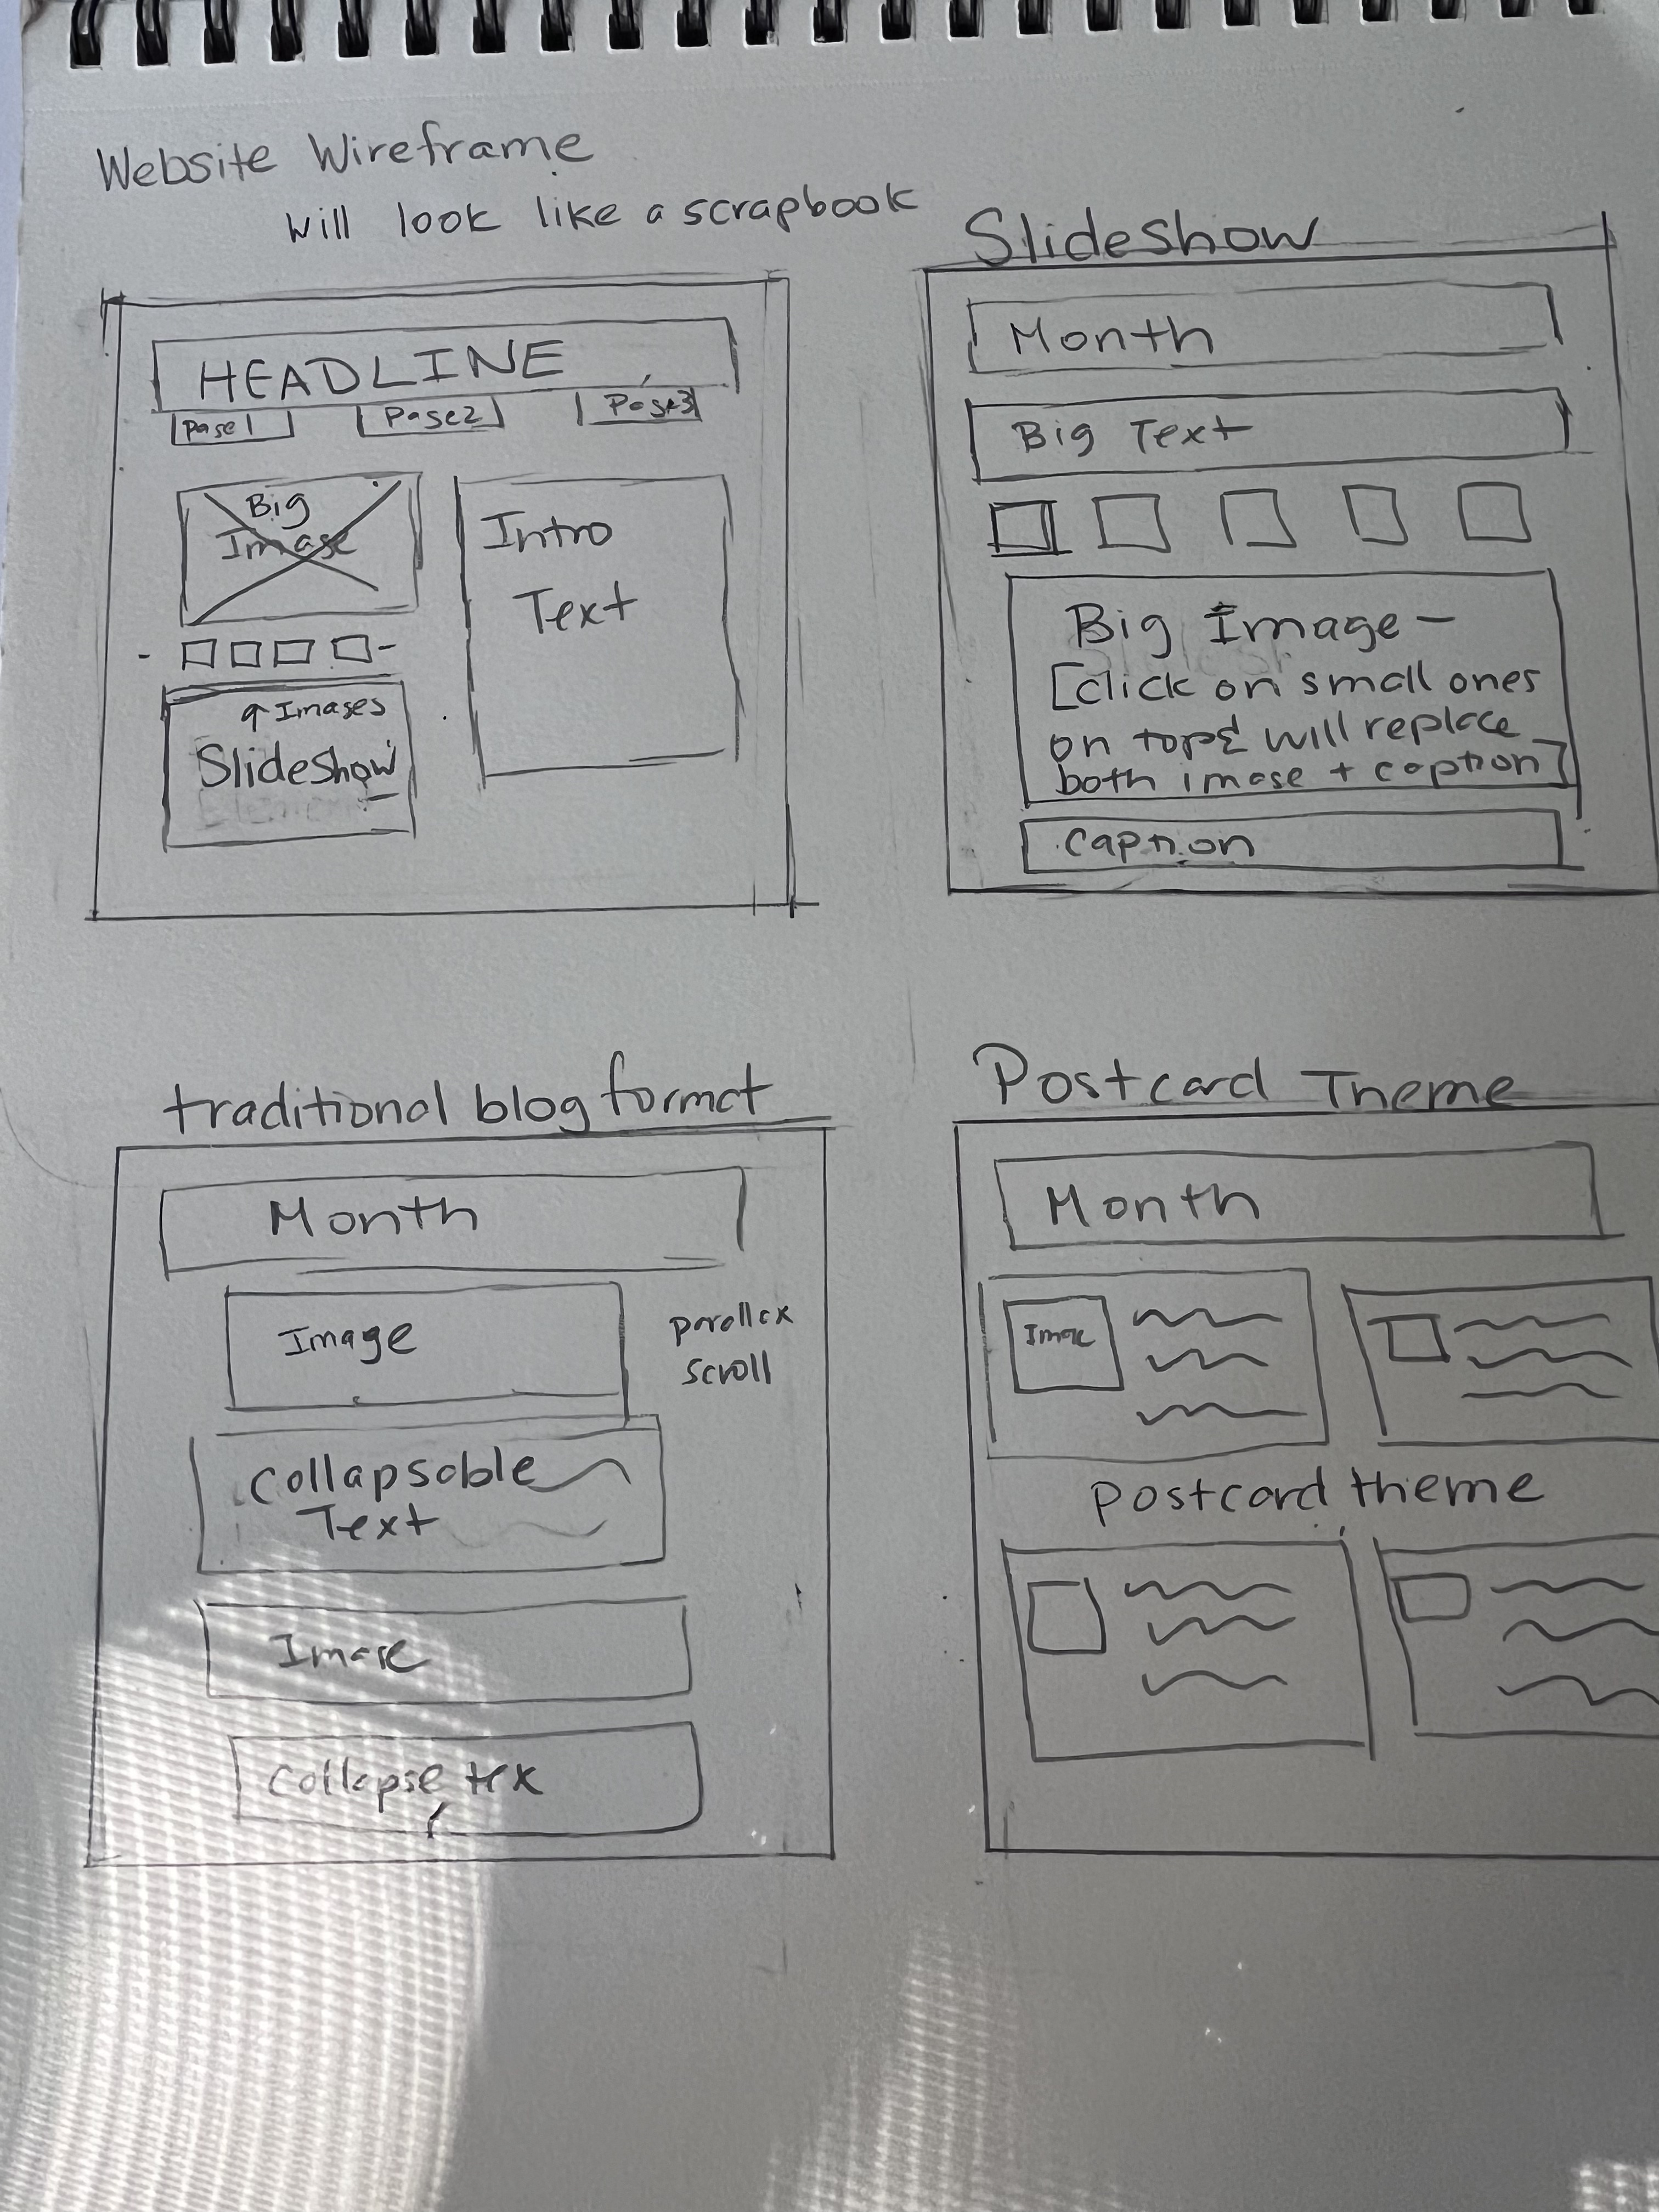 Website Wireframe
will look like a scrapbook
HEADLINE
Page 1
Page 2
Page 3
Big
Image
Intro
Text
Images
Slideshow
Slideshow
Month
Big Text
Big Image -
[click on small ones
on top & will replace
both image + caption]
Caption
traditional blog format
Month
Image
parallax
scroll
Collapsable
Text
Image
Collapse tex
Postcard Theme
Month
Image
postcard theme